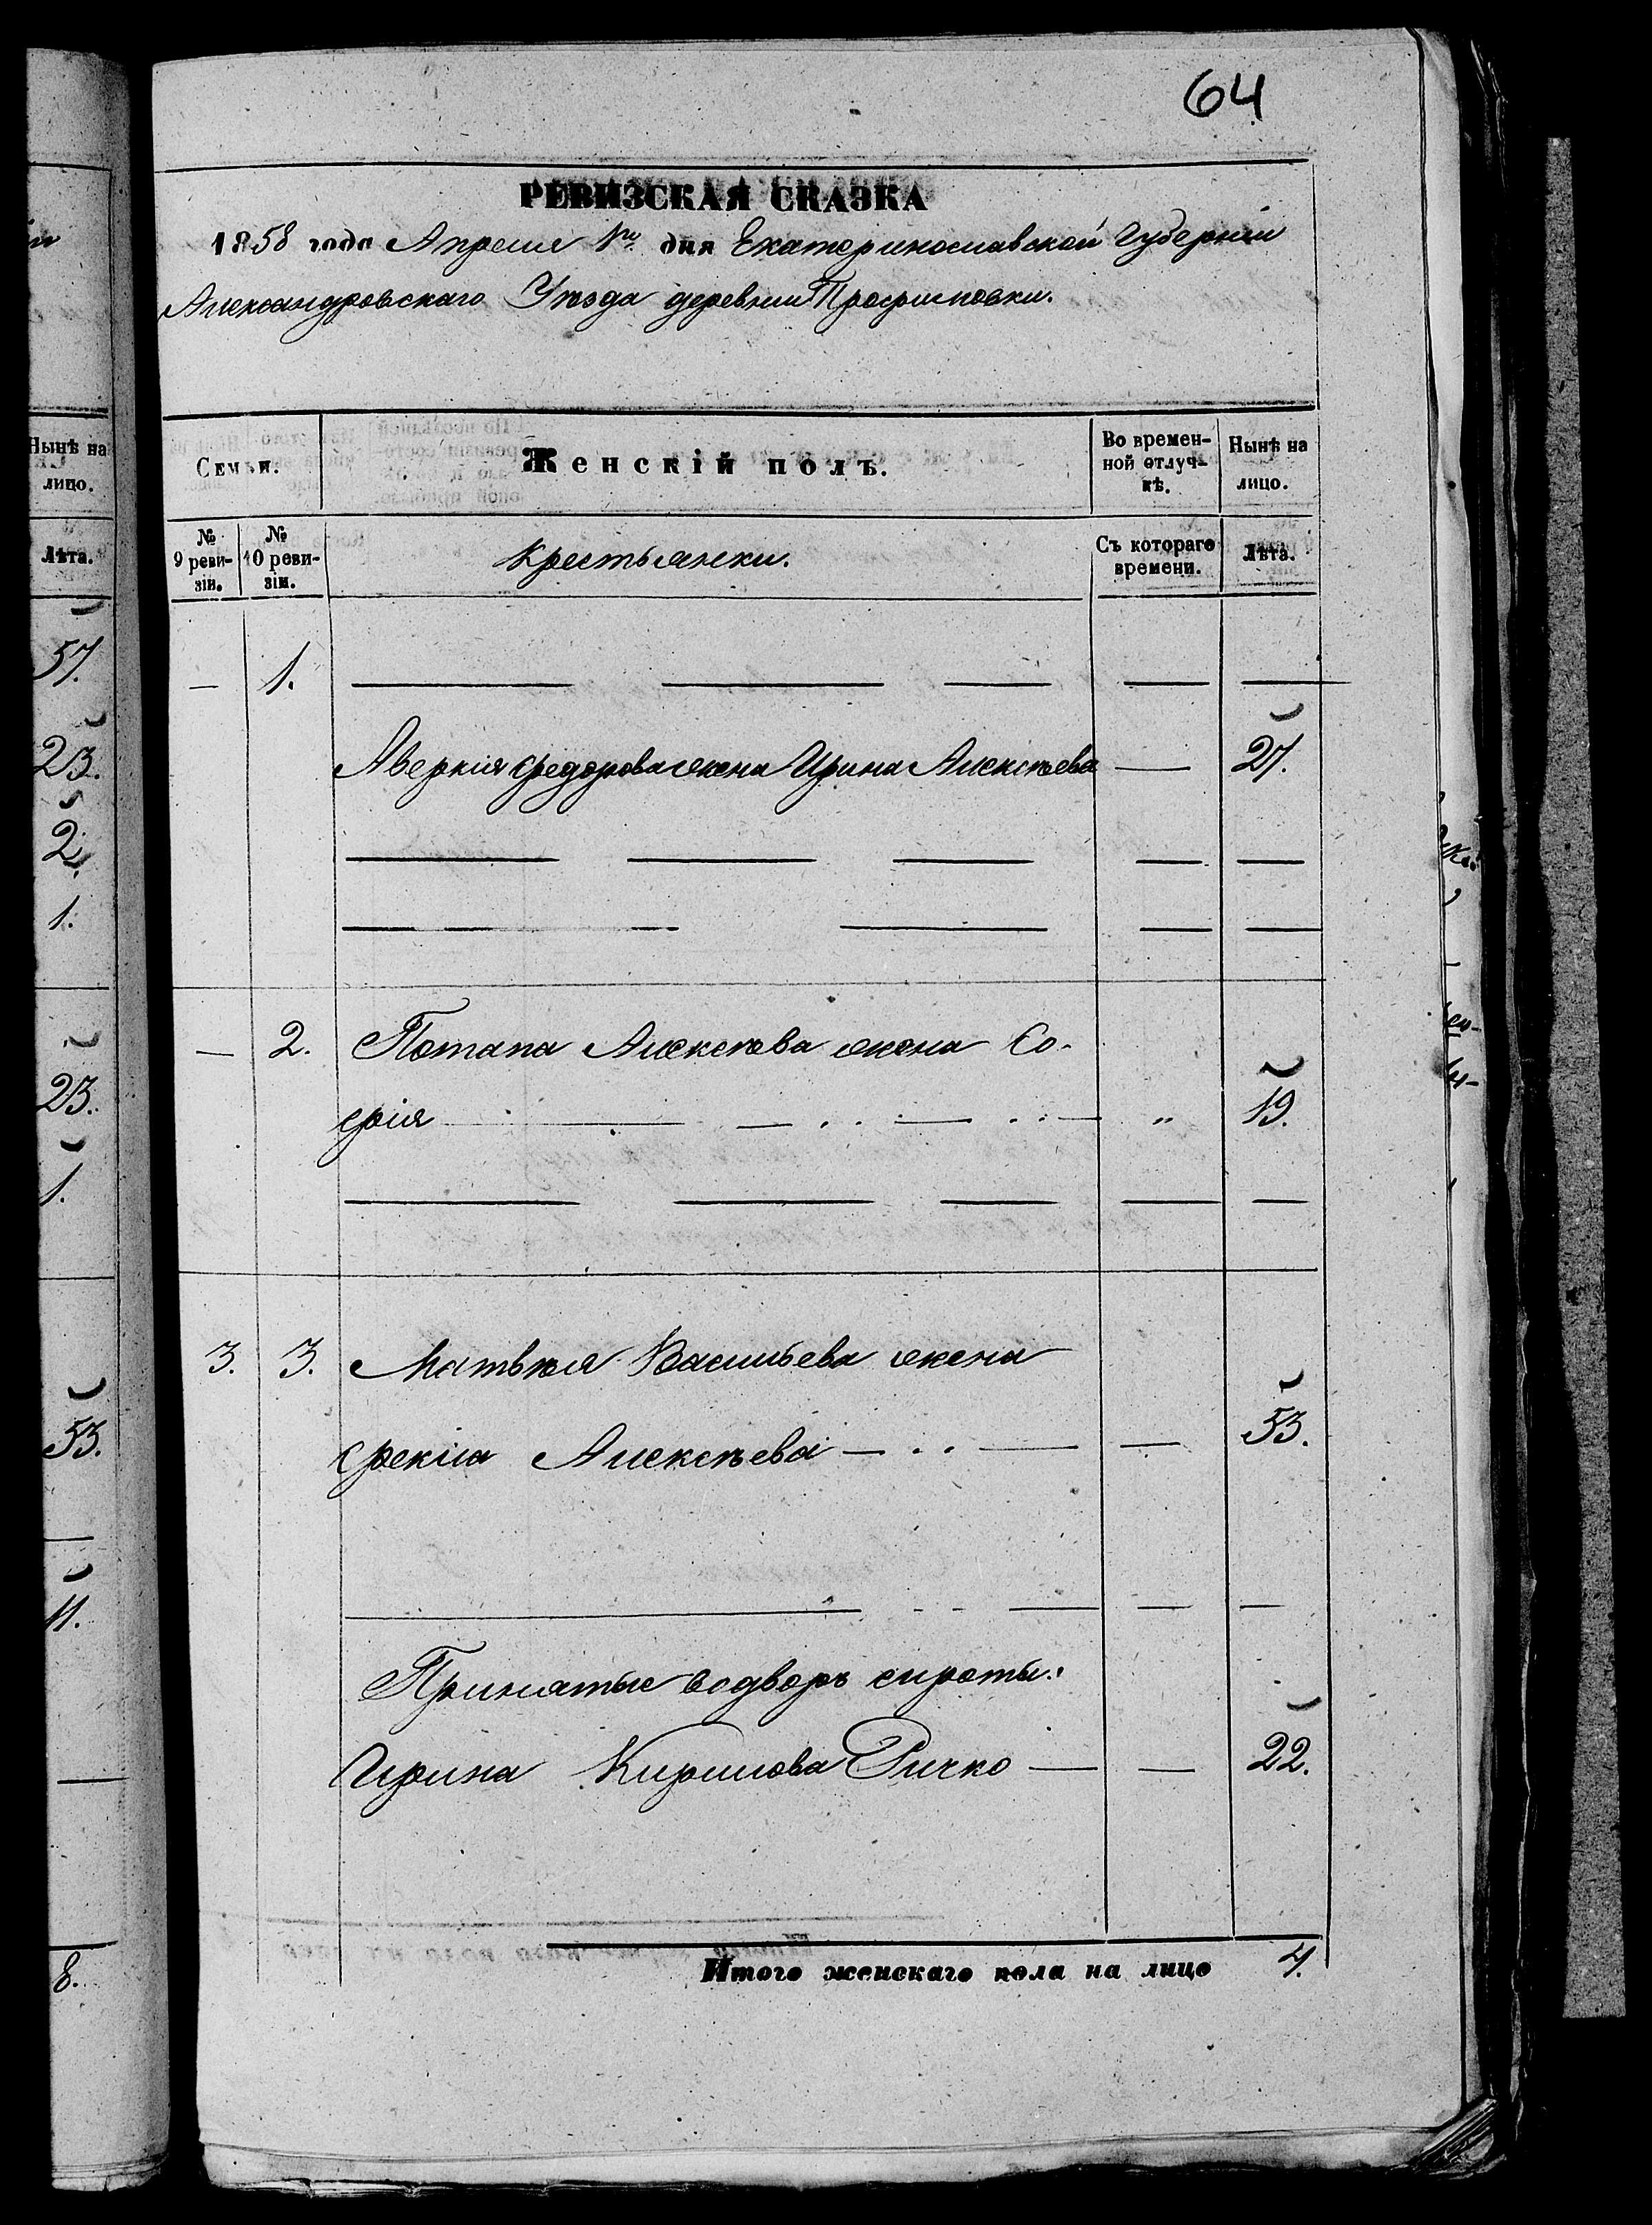 64
РЕВИЗСКАЯ СКАЗКА
1858 года Апреля 1го дня Екатеринославской Губерніи
Александровскаго Уѣзда деревни Трофимовки.
Нынѣ на лицо.
Лѣта.
57.
23.
2.
1.
23.
1.
53.
11.
8.
Семьи.
Женскій полъ.
Во времен-
ной отлуч-
кѣ.
Нынѣ на
лицо.
№
9 реви-
зіи.
№
10 реви-
зіи.
Крестьянки.
Съ котораго
времени.
Лѣта.
— 1.
Аверкія Федорова жена Ирина Алексѣева — 27.
— 2. Потапа Алексѣева жена Со-
фія — " 19.
3. 3. Матвѣя Васильева жена
Фекла Алексѣева — — 53.
Принятые водворъ сироты:
Ирина Кирилова Ричко — — 22.
Итого женскаго пола на лицо 4.